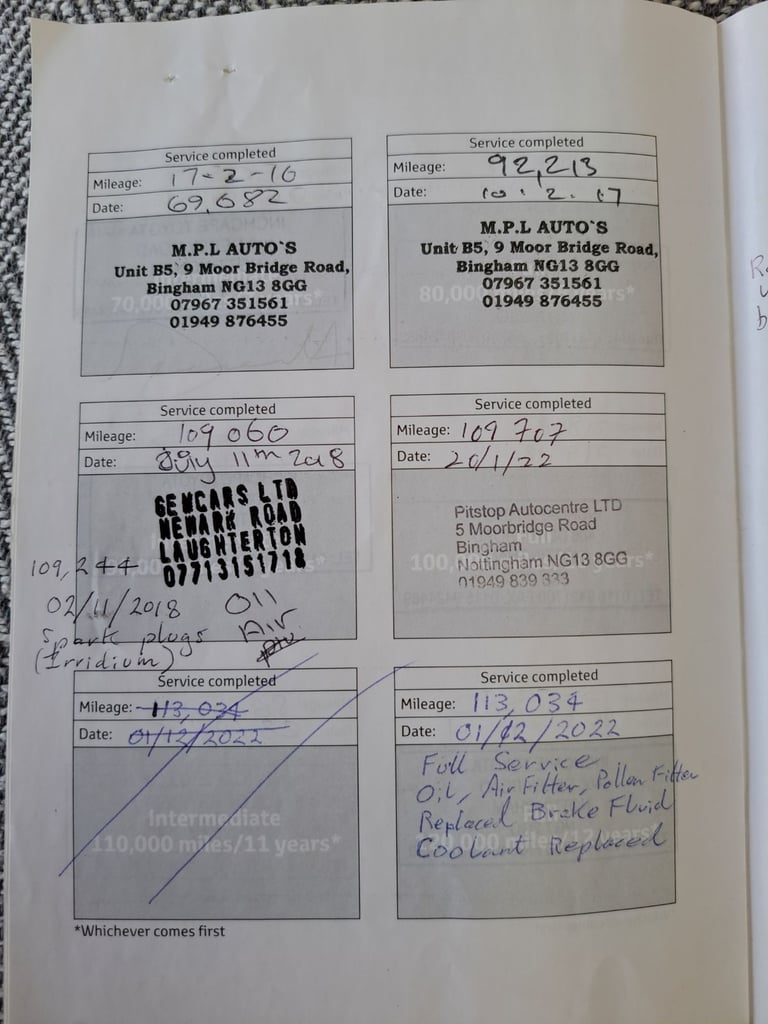 Service completed
Mileage: 17-2-16
Date: 69,682
M.P.L AUTO`S
Unit B5, 9 Moor Bridge Road,
Bingham NG13 8GG
07967 351561
01949 876455
70,000
Service completed
Mileage: 92,213
Date: 10.2.17
M.P.L AUTO`S
Unit B5, 9 Moor Bridge Road,
Bingham NG13 8GG
07967 351561
01949 876455
80,000
Service completed
Mileage: 109 060
Date: July 11th 2018
GEMCARS LTD
NEWARK ROAD
LAUGHTERTON
07713151718
109,244
02/11/2018 Oil
Spark plugs Air
(Irridium)
Service completed
Mileage: 109 707
Date: 20/1/22
Pitstop Autocentre LTD
5 Moorbridge Road
Bingham
Nottingham NG13 8GG
01949 839 333
100,
Service completed
Mileage: 113,034
Date: 01/12/2022
Intermediate
110,000 miles/11 years*
Service completed
Mileage: 113,034
Date: 01/12/2022
Full Service
Oil, Air Filter, Pollen Filter
Replaced Brake Fluid
Coolant Replaced
miles/12 years*
*Whichever comes first